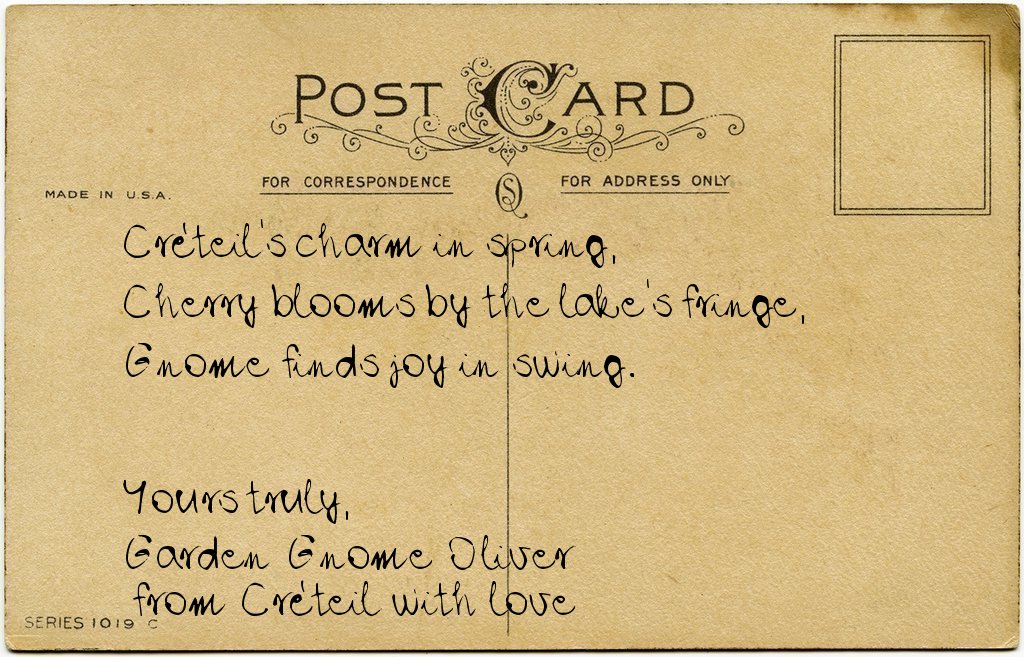 POST CARD
FOR CORRESPONDENCE
FOR ADDRESS ONLY
MADE IN U.S.A.
Créteil's charm in spring,
Cherry blooms by the lake's fringe,
Gnome finds joy in swing.
Yours truly,
Garden Gnome Oliver
from Créteil with love
SERIES 1019 C